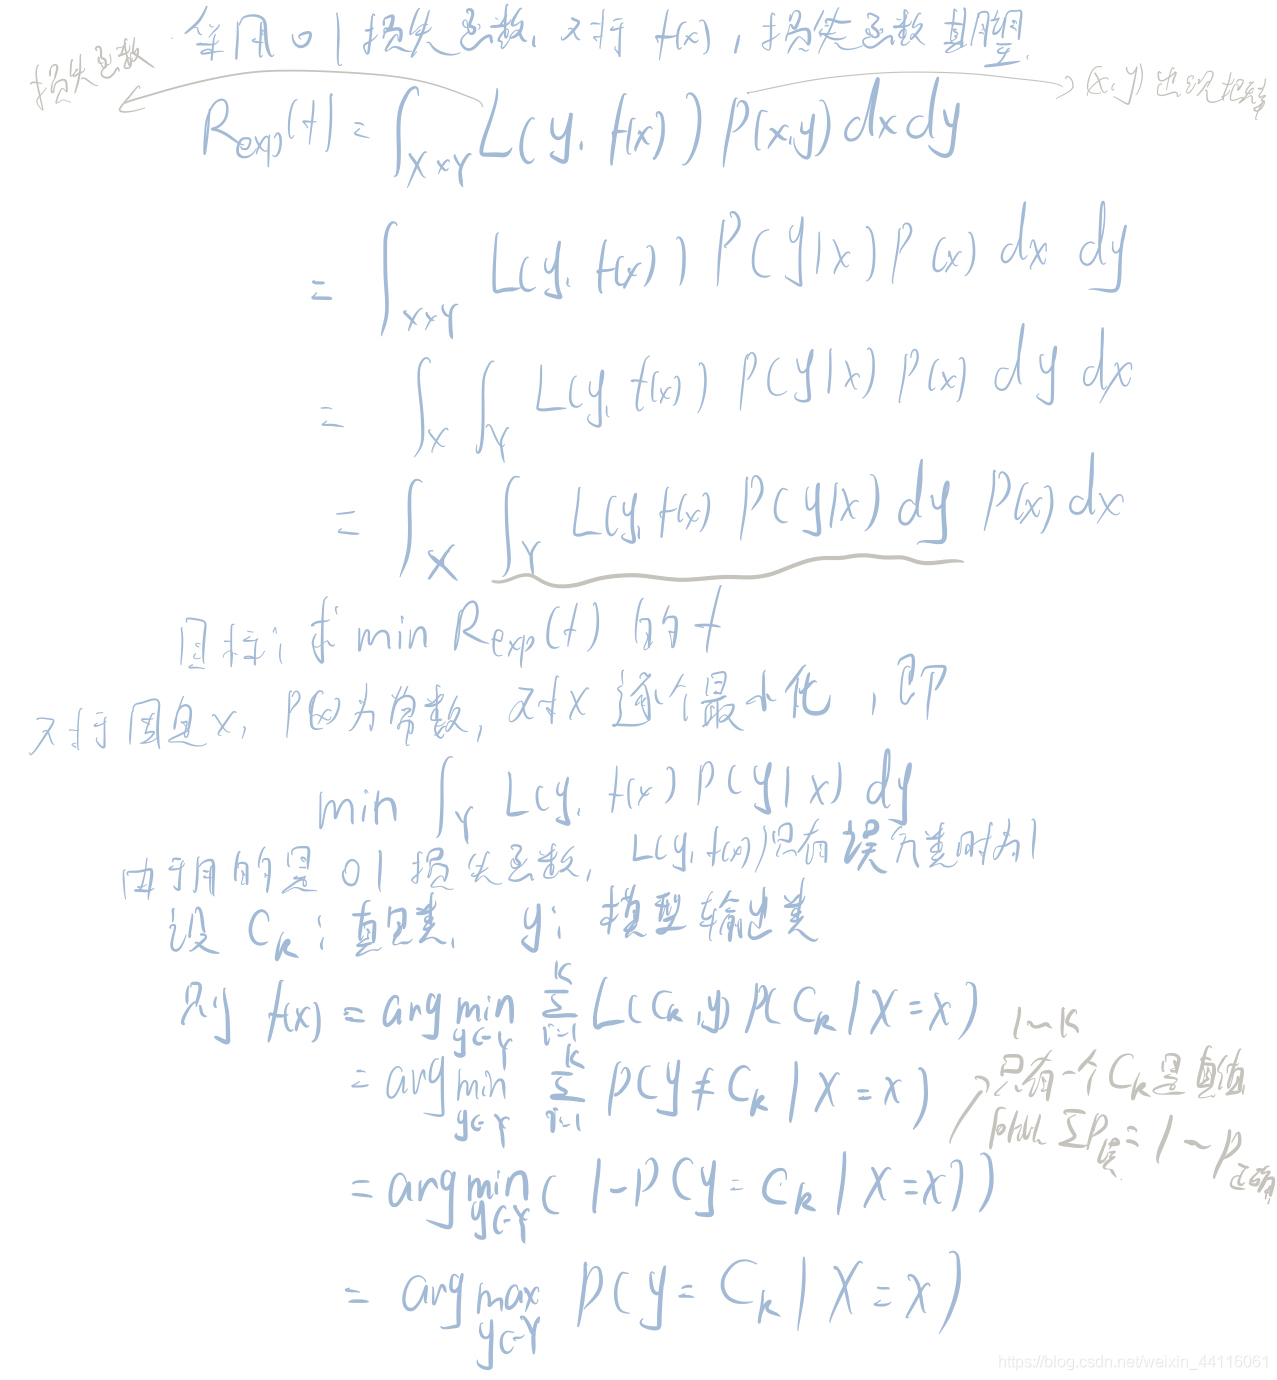 使用 0 1 损失函数, 对于 f(x), 损失函数期望
损失函数
(x, y) 出现概率
R_exp(f) = ∫_{X×Y} L(y, f(x)) P(x,y) dx dy
= ∫_{X×Y} L(y, f(x)) P(y|x) P(x) dx dy
= ∫_X ∫_Y L(y, f(x)) P(y|x) P(x) dy dx
= ∫_X ∫_Y L(y, f(x) P(y|x) dy P(x) dx
目标: 求 min R_exp(f) 的 f
对于固定x, P(x)为常数, 对x 逐个最小化, 即
min ∫_Y L(y, f(x) P(y|x) dy
由于用的是 0 1 损失函数, L(y, f(x))只有误分类时为1
设 C_k: 真是类, y: 模型输出类
则 f(x) = arg min_{y∈Y} Σ_{i=1}^{K} L(C_k, y) P(C_k | X = x)
= arg min_{y∈Y} Σ_{i=1}^{K} P(y ≠ C_k | X = x)
1 ~ K
只有一个 C_k 是真值
所以 ΣP_误 = 1 - P_正确
= arg min_{y∈Y} ( 1 - P(y = C_k | X = x))
= arg max_{y∈Y} P(y = C_k | X = x)
https://blog.csdn.net/weixin_44116061